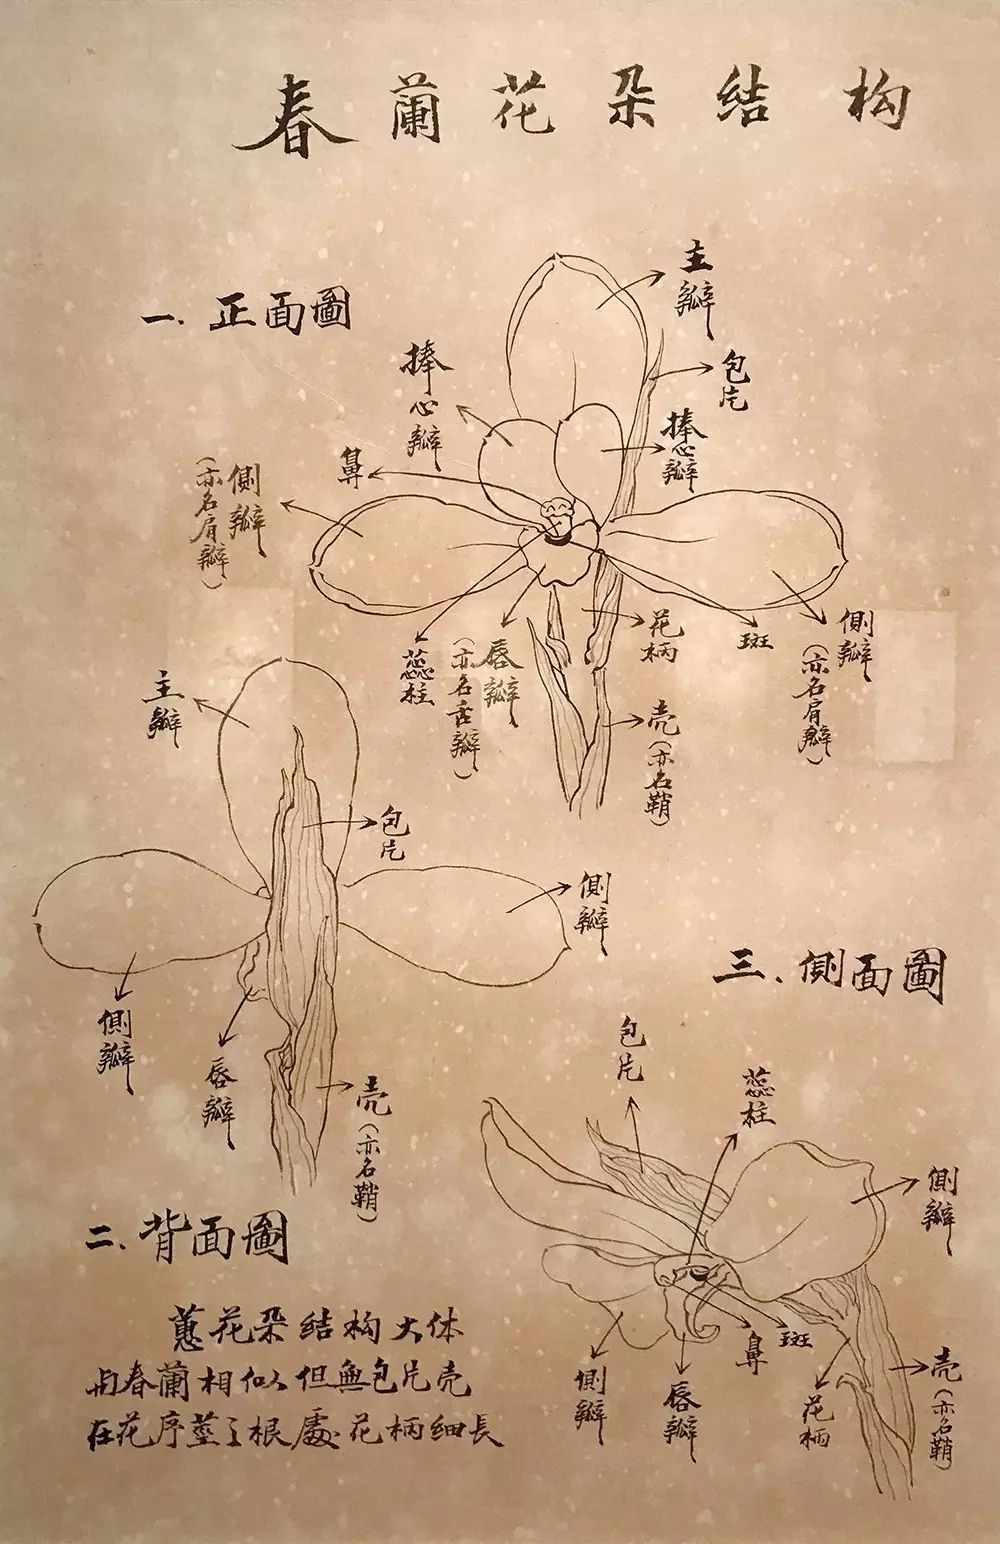 春蘭花朵结构
一.正面圖
主瓣
包片
捧心瓣
捧心瓣
鼻
側瓣
(亦名肩瓣)
蕊柱
唇瓣
(亦名舌瓣)
花柄
斑
側瓣
(亦名肩瓣)
壳(亦名鞘)
主瓣
包片
側瓣
側瓣
唇瓣
壳(亦名鞘)
二.背面圖
三.側面圖
包片
蕊柱
側瓣
側瓣
唇瓣
鼻
斑
花柄
壳(亦名鞘)
蕙花朵结构大体
与春蘭相似但無包片壳
在花序莖之根處花柄细長